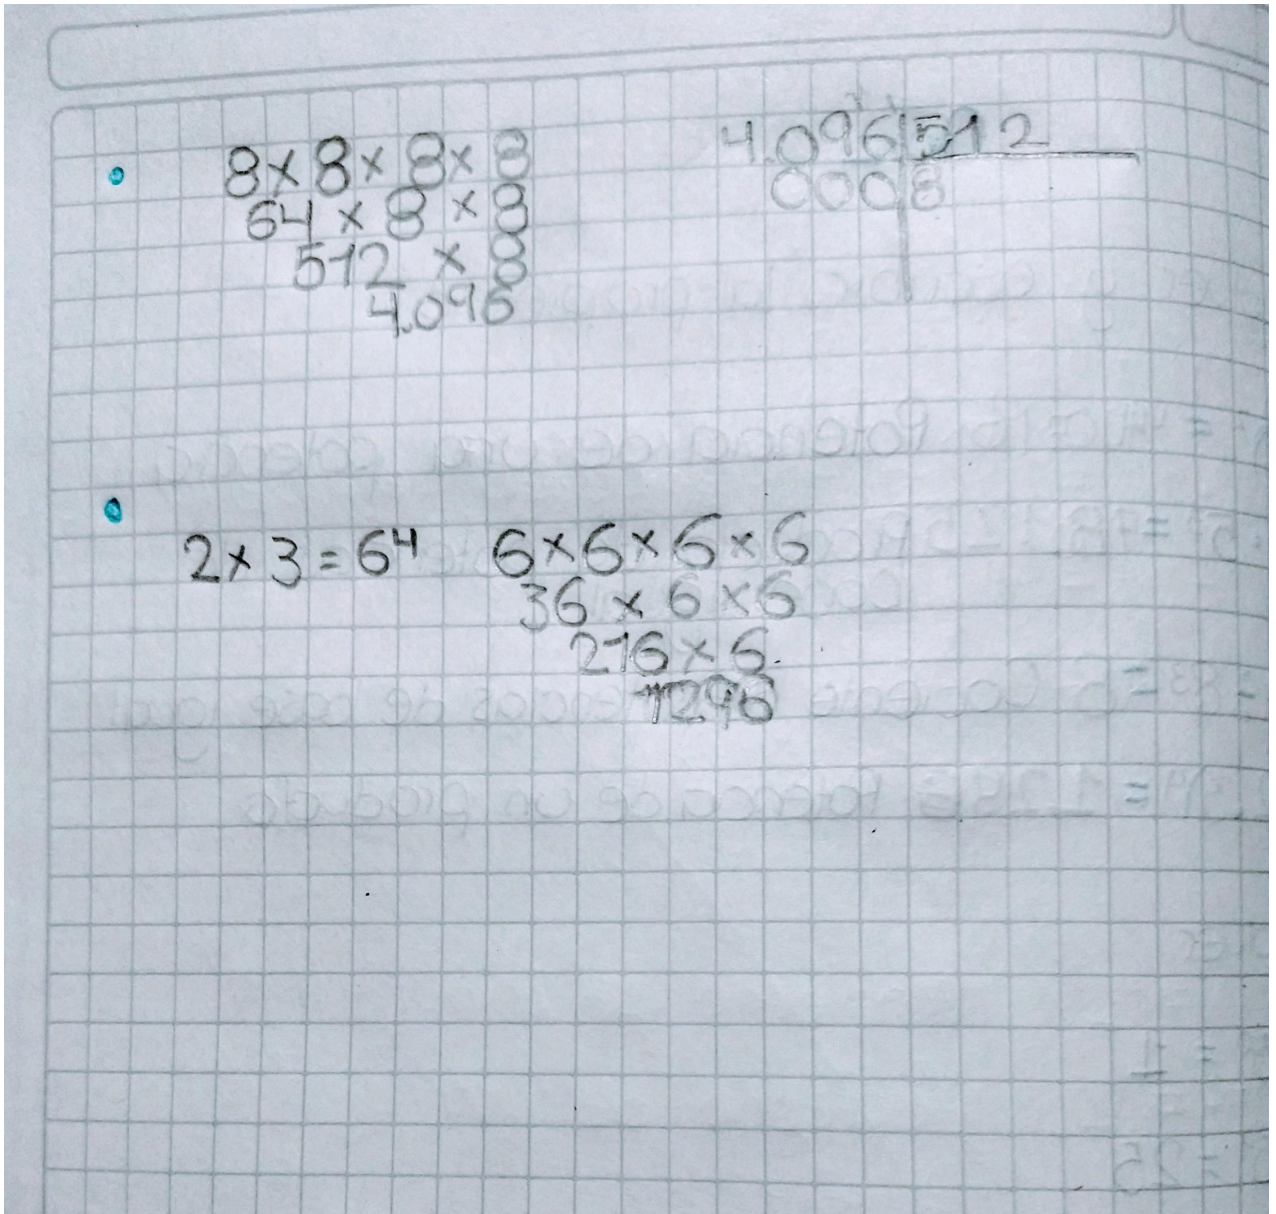 8×8×8×8
64×8×8
512×8
4.096
4.096 512
000 8
2×3=6⁴
6×6×6×6
36×6×6
216×6
1296